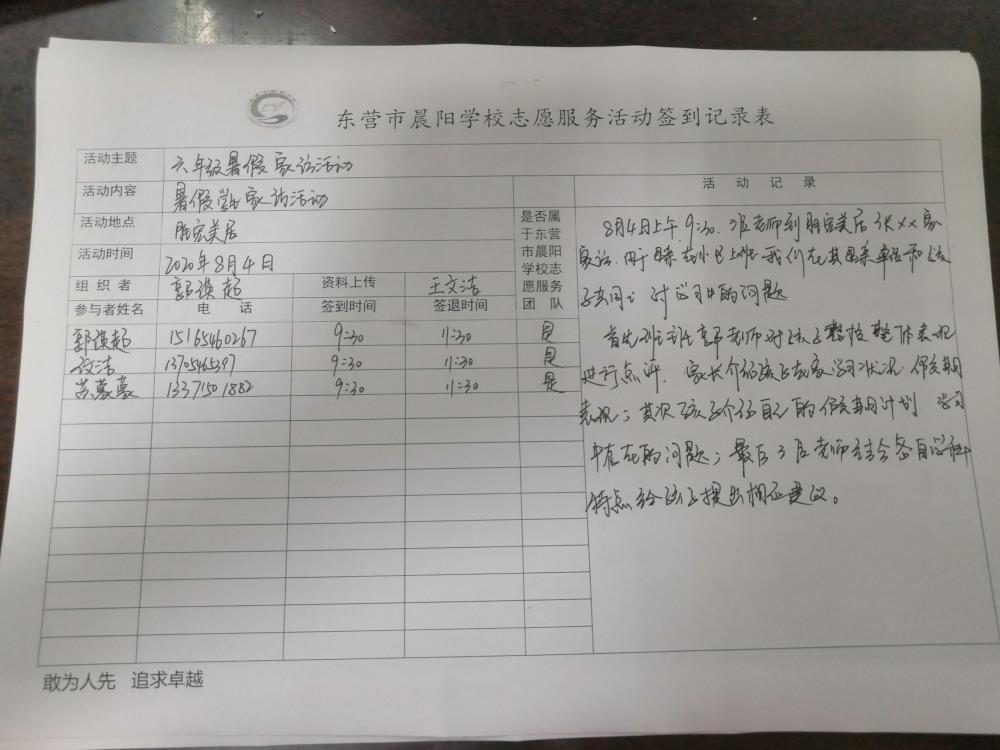 东营市晨阳学校志愿服务活动签到记录表
活动主题 六年级暑假家访活动
活动内容 暑假学生家访活动
活动地点 胜宏美居
活动时间 2020年8月4日
组织者 郭洪起 资料上传 王文洁
参与者姓名 电话 签到时间 签退时间 是否属于东营市晨阳学校志愿服务团队
郭洪起 15165460267 9:30 11:30 是
文洁 13705465397 9:30 11:30 是
苏蒙蒙 13371501882 9:30 11:30 是
活动记录
8月4日上午9:30. 3位老师到胜宏美居 张xx家
家访.
子共同 讨 学习中的问题
首先 老师对孩子整体表现
进行点评. 家长介绍孩子在家学习状况. 假期
表现; 其次孩子介绍自己的假期计划 学习
中存在的问题; 最后3位老师结合各自学科
特点给孩子提出相应建议。
敢为人先 追求卓越